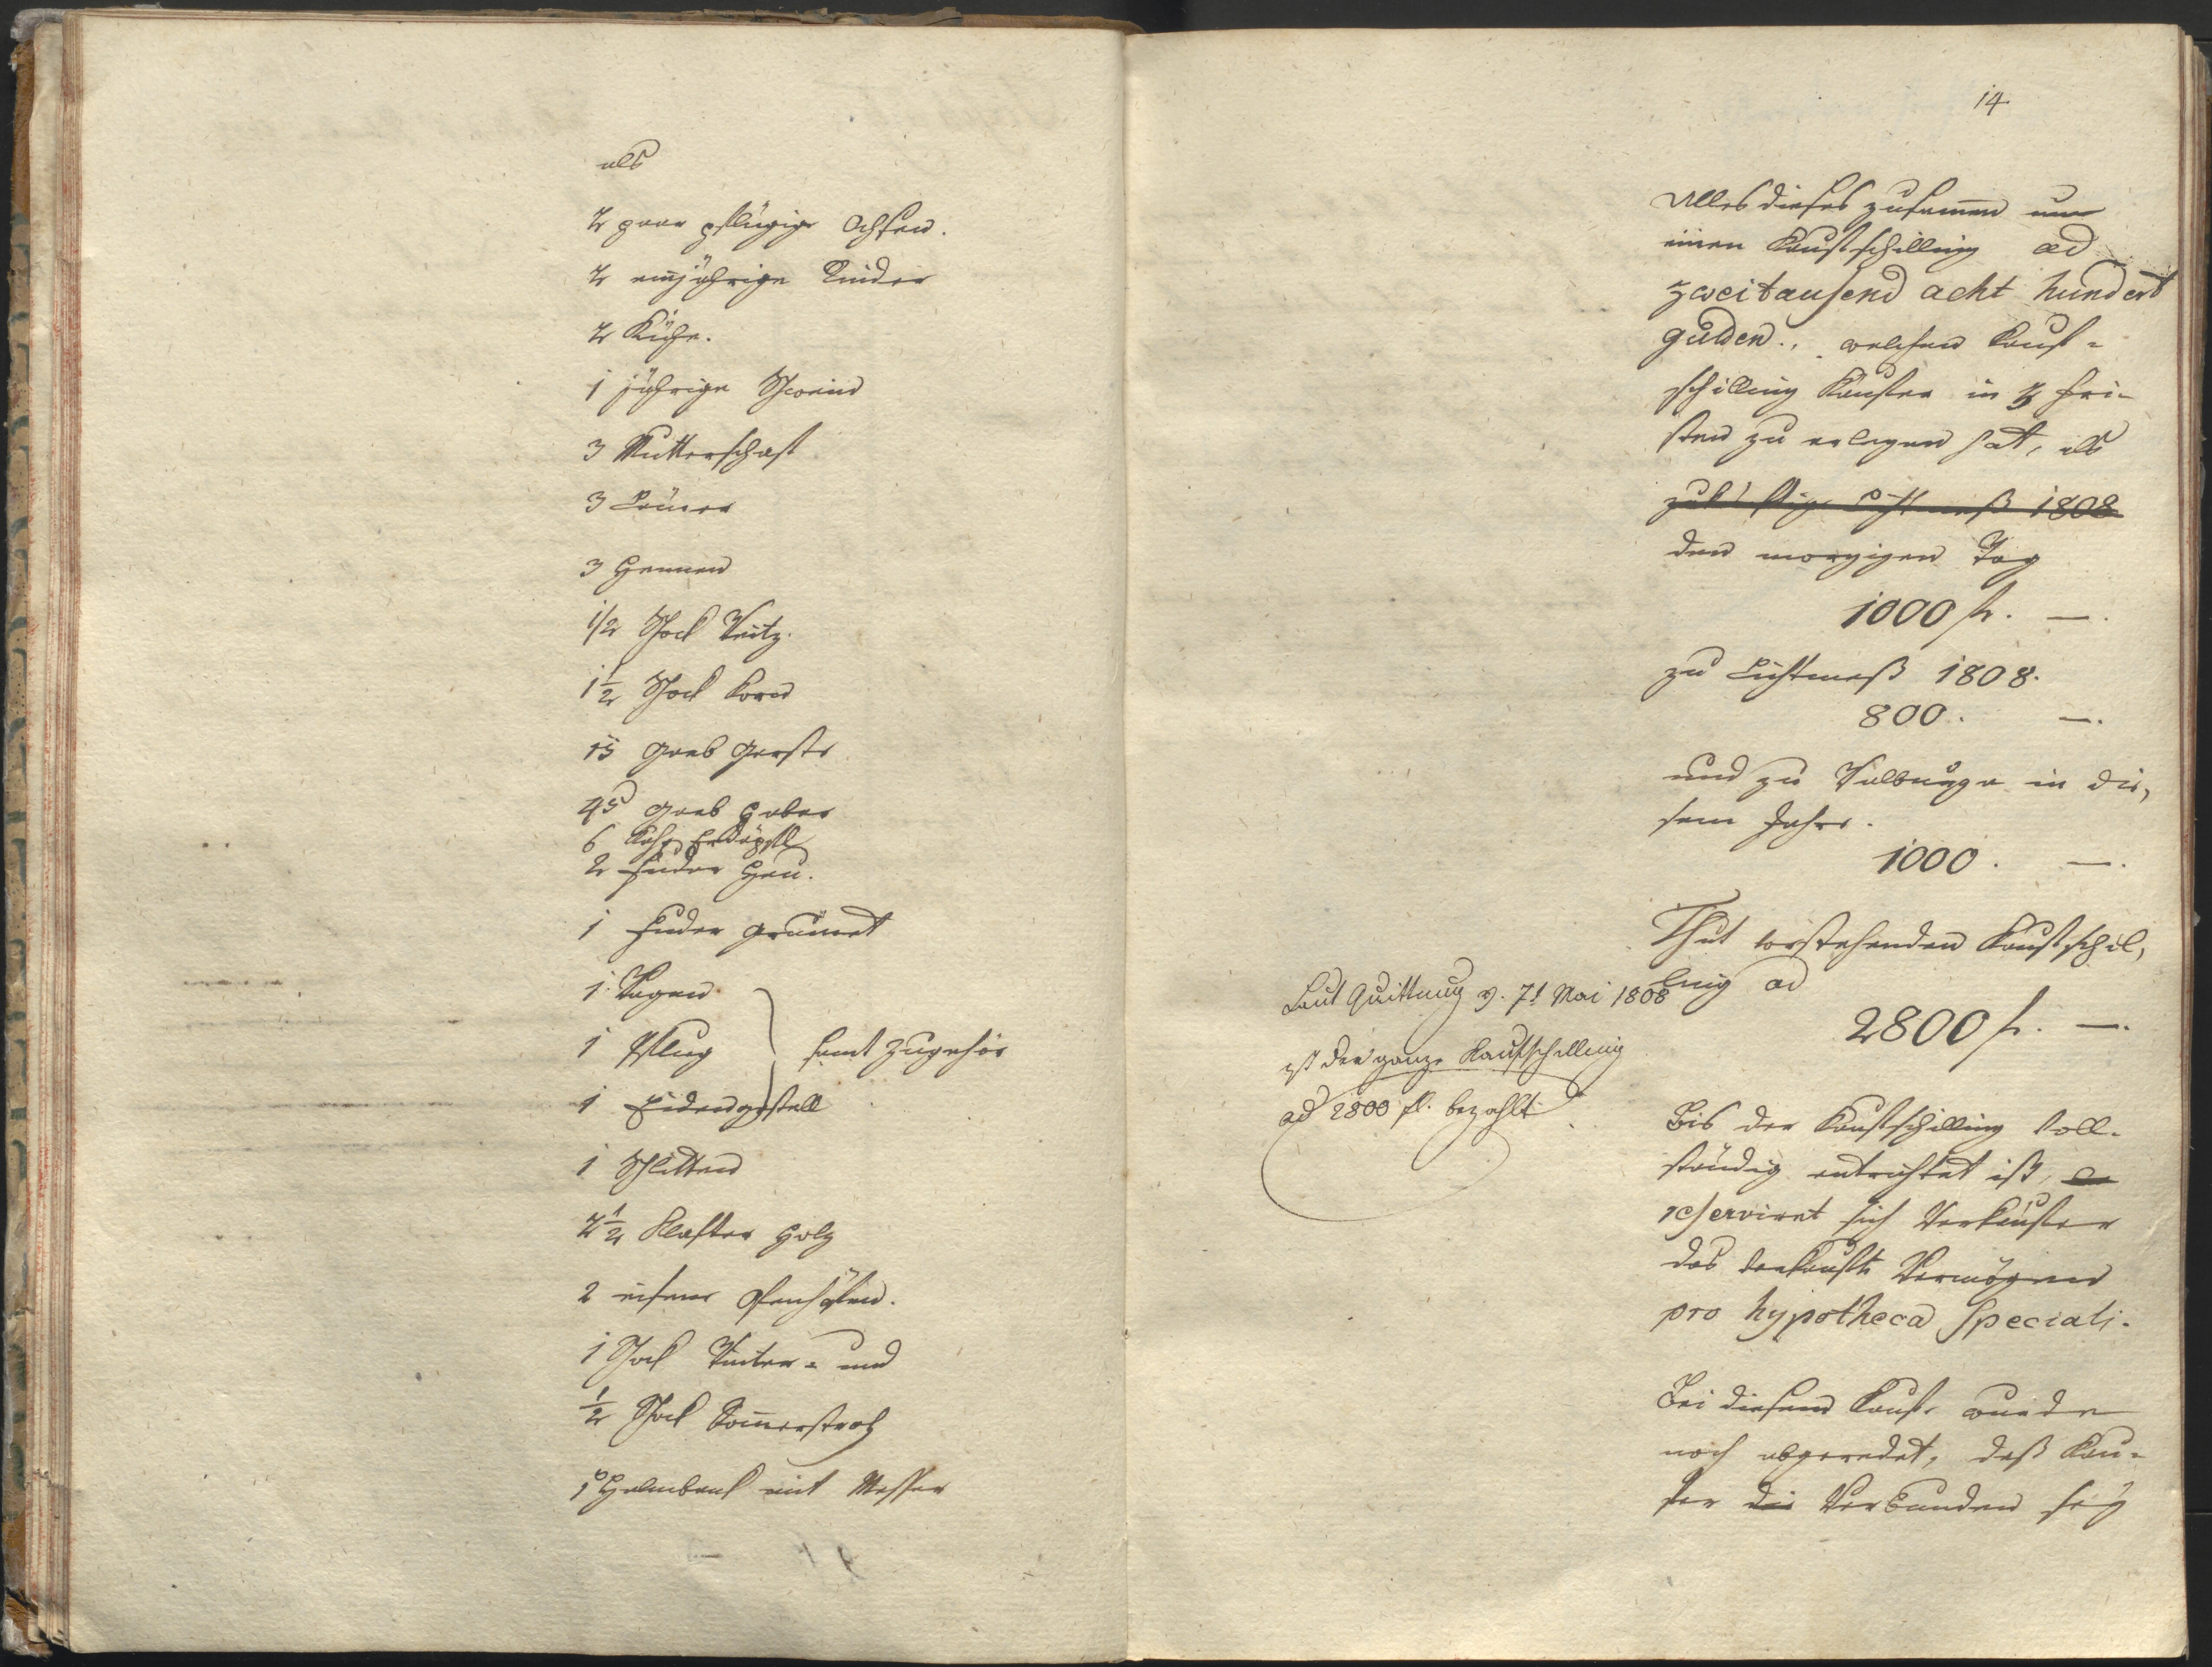 als
2 paar pflügige Ochsen.
2 einjährige Rinder
2 Kühe.
1 jährige Schwein
3 Mutterschaf
3 Lämer
3 Hennen
1/2 Schock Weitz.
1 1/2 Schock Korn
15 Garb Gerste
45 Garb Haber
6 Erdäpfl
2 Fuder Heu.
1 Fuder Grumet
1 Wagen
1 Pflug samt Zugehör
1 Eidengestell
1 Schlitten
2 1/2 Klafter Holz
2 eiserne Ofenhäfen.
1 Schock Winter- und
1/2 Schock Somerstroh
1 Halmbank mit Messer
14
Alles dieses zusamen um
einen Kaufschilling ad
zweitausend acht hundert
gulden., welchen Kauf-
schilling Käufer in 3 Fri-
sten zu erlegen hat, als
Lichtmeß 1808
den morgigen Tag
1000 f. —.
zu Lichtmeß 1808.
800. —.
und zu Walburga in die,
sem Jahre.
1000. —.
Thut vorstehenden Kaufschil,
ling ad
2800 f. —.
Laut Quittung v. 7t Mai 1808
ist der ganze Kaufschilling
ad 2800 fl. bezahlt
Bis der Kaufschilling voll-
ständig entrichtet ist,
reserviret sich Verkäufer
das verkaufte Vermögen
pro hypotheca speciali.
Bei diesem Kaufe wurde
noch abgeredet, daß Käu-
fer die Verbunden sey